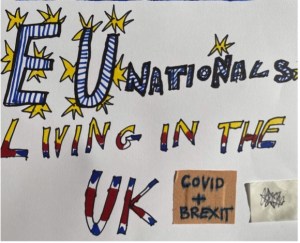 EU NATIONALS
LIVING IN THE
UK
COVID
+
BREXIT